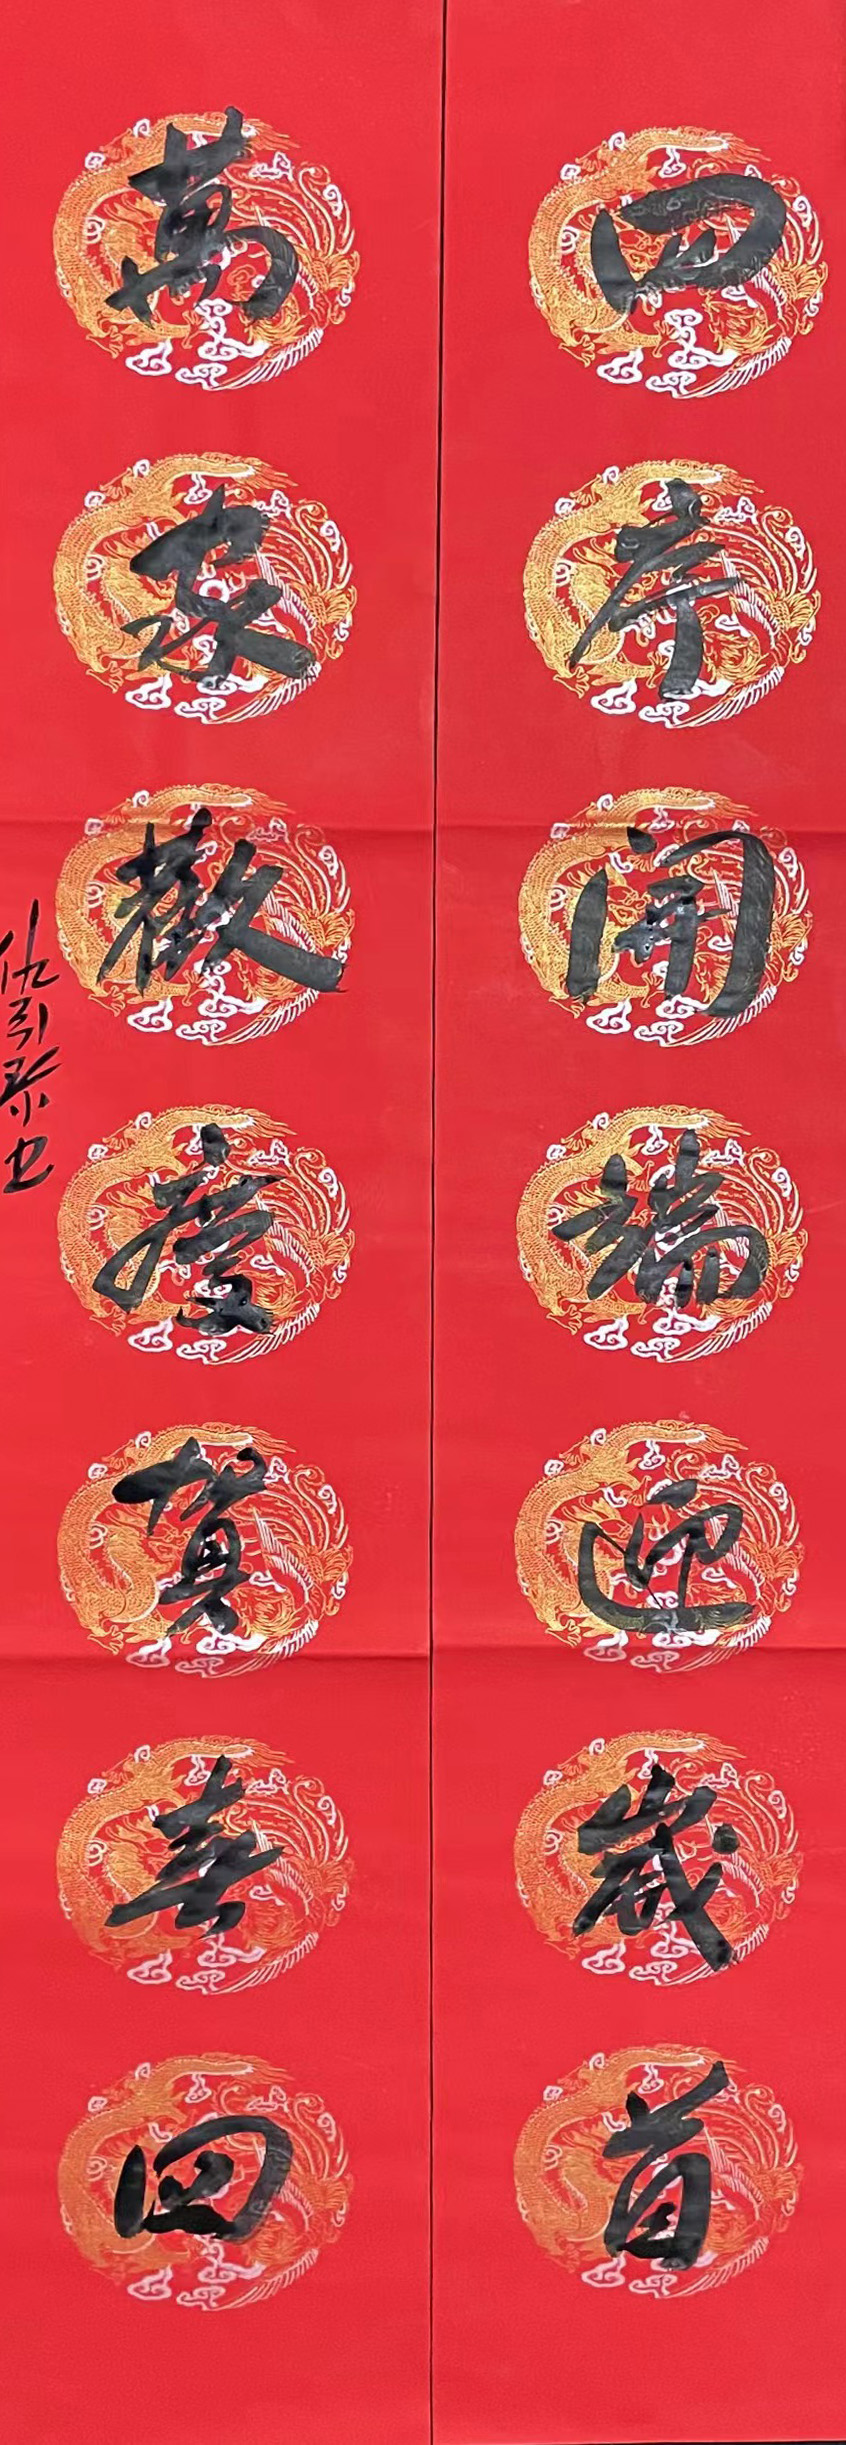 四序開端迎歲首
萬家歡慶賀春回
仇引 书